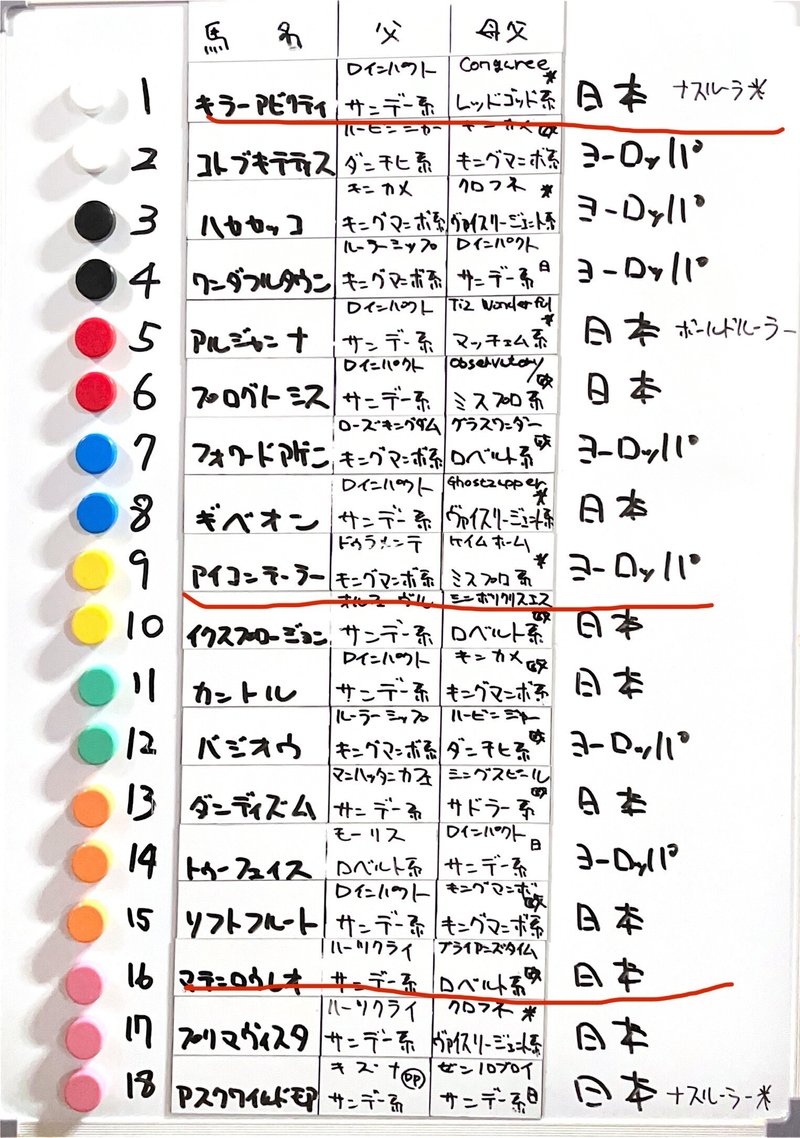 馬名 父 母父
ロインパクト Conguree ※
1 キラーアビリティ サンデー系 レッドゴッド系 日本 ナスルーラ※
ハービンジャー キンカメ 欧
2 コトブキテティス ダンチヒ系 キングマンボ系 ヨーロッパ
キンカメ クロフネ ※
3 ハヤヤッコ キングマンボ系 ヴァイスリージェント系 ヨーロッパ
ルーラーシップ ロインパクト
4 ワンダフルタウン キングマンボ系 サンデー系 日 ヨーロッパ
ロインパクト Tiz Wonderful ※
5 アルジャンナ サンデー系 マッチェム系 日本 ボールドルーラー
ロインパクト Observatory 欧
6 プログノーシス サンデー系 ミスプロ系 日本
ローズキングダム グラスワンダー
7 フォワードアゲン キングマンボ系 ロベルト系 欧 ヨーロッパ
ロインパクト Ghostzapper ※
8 ギベオン サンデー系 ヴァイスリージェント系 日本
ドゥラメンテ ケイムホーム ※
9 アイコンテーラー キングマンボ系 ミスプロ系 ヨーロッパ
オルフェーヴル シンボリクリスエス
10 イクスプロージョン サンデー系 ロベルト系 欧 日本
ロインパクト キンカメ 欧
11 カントル サンデー系 キングマンボ系 日本
ルーラーシップ ハービンジャー
12 バジオウ キングマンボ系 ダンチヒ系 欧 ヨーロッパ
マンハッタンカフェ シングスピール
13 ダンディズム サンデー系 サドラー系 欧 日本
モーリス ロインパクト 日
14 トゥーフェイス ロベルト系 サンデー系 ヨーロッパ
ロインパクト キングマンボ 欧
15 ソフトフルート サンデー系 キングマンボ系 日本
ハーツクライ ブライアンズタイム
16 マテンロウレオ サンデー系 ロベルト系 欧 日本
ハーツクライ クロフネ ※
17 プリマヴィスタ サンデー系 ヴァイスリージェント系 日本
キズナ DP ゼンノロブロイ
18 アスクワイルドモア サンデー系 サンデー系 日 日本 ナスルーラー※